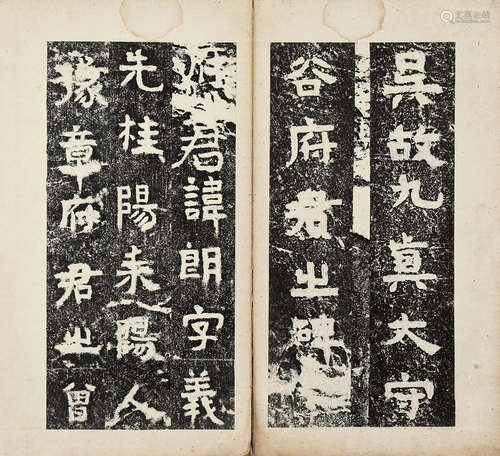 吳故九真太守
谷府君之碑
府君諱朗字義
先桂陽耒陽人
豫章府君之曾